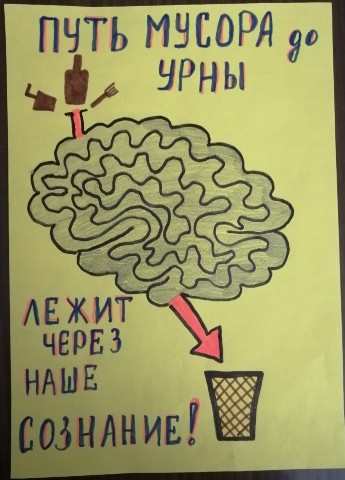 ПУТЬ МУСОРА до
УРНЫ
ЛЕЖИТ
ЧЕРЕЗ
НАШЕ
СОЗНАНИЕ!